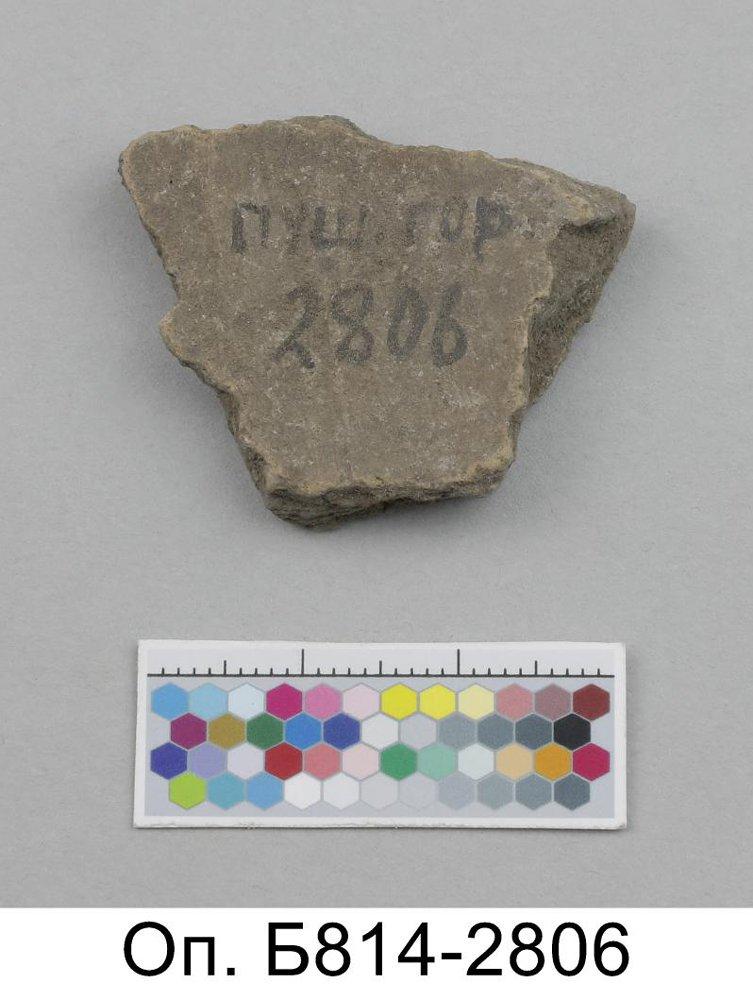 ПУШ. ГОР
2806
Оп. Б814-2806